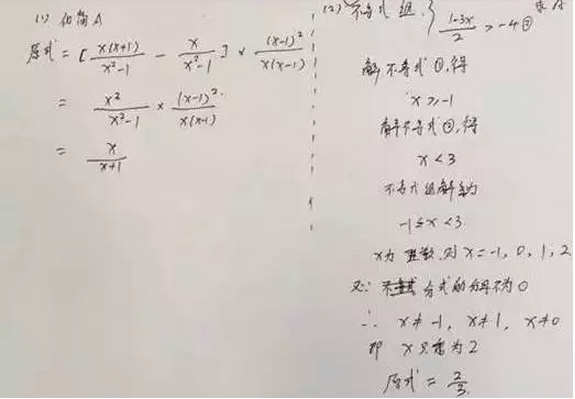 (1) 化简A
原式 = [x(x+1)/(x²-1) - x/(x²-1)] × (x-1)²/(x(x-1))
= x²/(x²-1) × (x-1)²/(x(x-1))
= x/(x+1)
(2) 不等式组
(1-3x)/2 > -4②
解不等式①,得
x ≥ -1
解不等式②,得
x < 3
不等式组解集为
-1 ≤ x < 3.
x为整数,则 x = -1, 0, 1, 2
又∵ 分式的分母不为0
∴ x ≠ -1, x ≠ 1, x ≠ 0
即 x只能为2
原式 = 2/3.